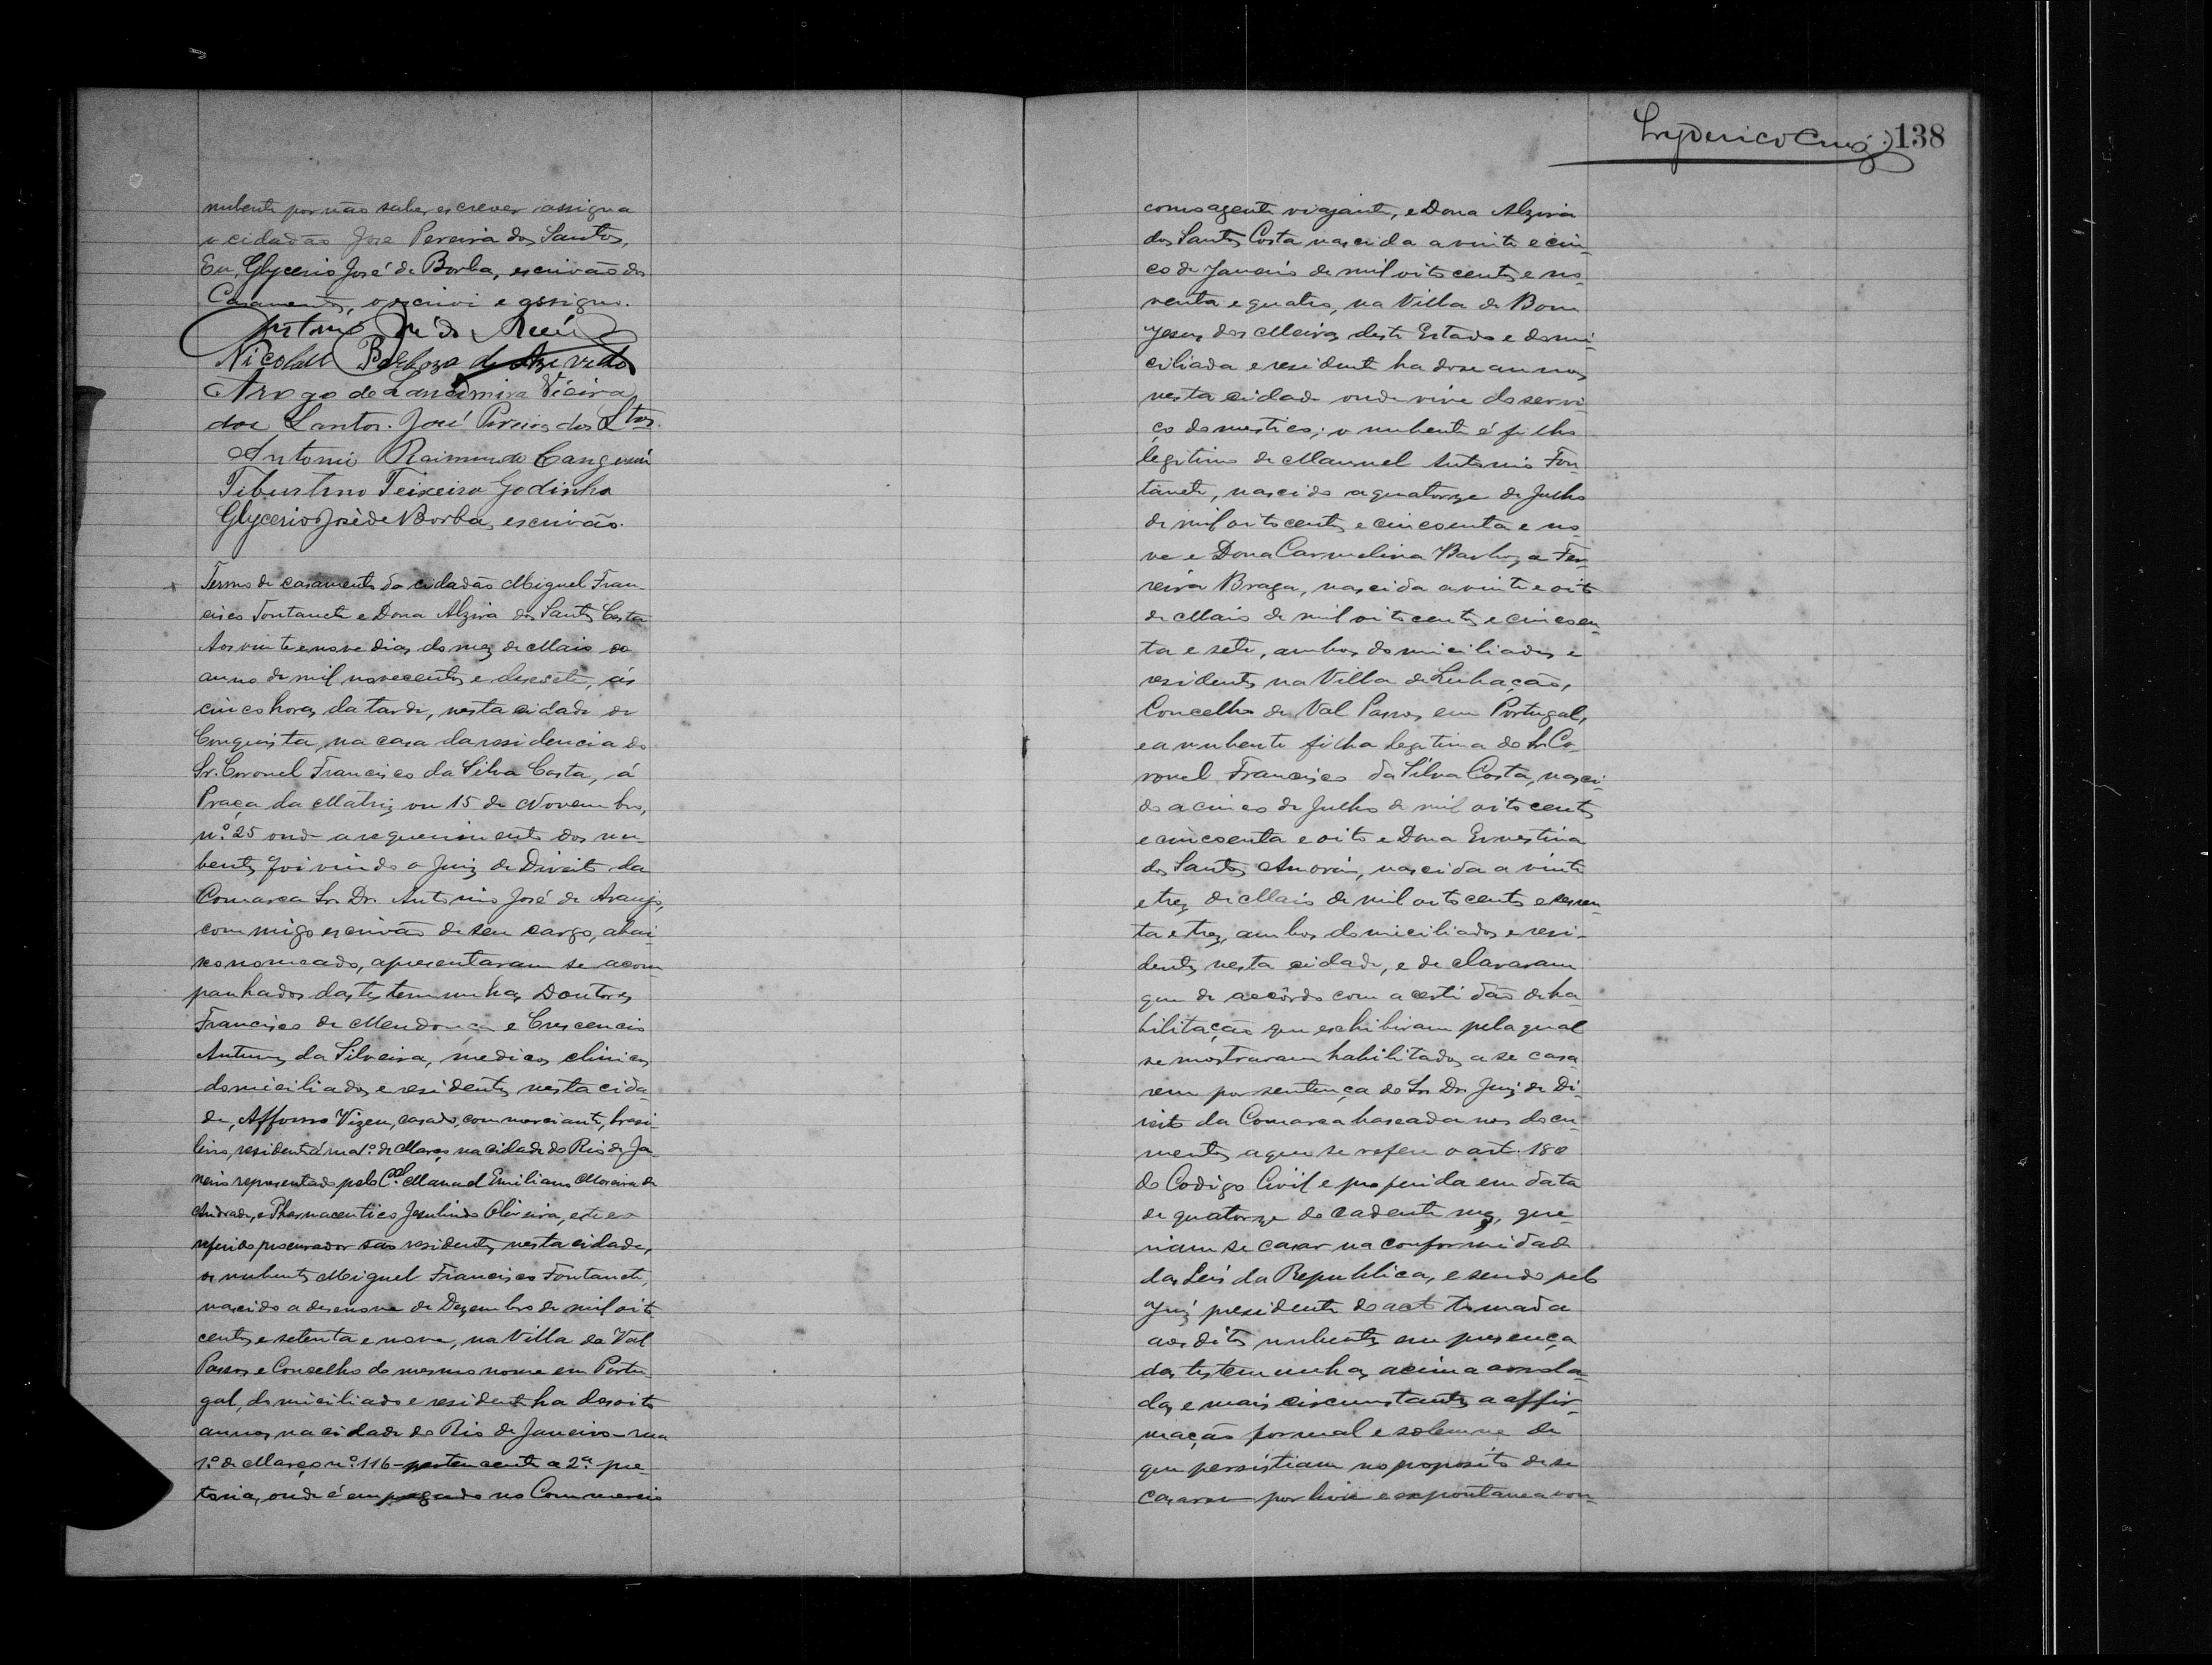 nubente por não saber escrever assigna
o cidadão José Pereira dos Santos,
Eu, Glycerio José de Borba, escrivão dos
Casamentos, o escrivi e assigno.
Nicolau Barboza de Azevedo
A rogo de Laudimira Vieira
dos Santos. José Pereira dos Stos.
Antonio Raimundo Cangussú
Tiburtino Teixeira Godinho
Glycerio José de Borba, escrivão.
Termo de casamento do cidadão Miguel Fran-
cisco Fontanete e Dona Alzira dos Santos Costa
Aos vinte e nove dias do mez de Maio do
anno de mil novecentos e desesete, ás
cinco horas da tarde, nesta cidade de
Conquista, na casa da residencia do
Sr. Coronel Francisco da Silva Costa, á
Praça da Matriz ou 15 de Novembro,
nº. 25 onde a requerimento dos nu-
bentes foi vindo o Juiz de Direito da
Comarca Sr. Dr. Antonio José de Araujo,
commigo escrivão de seu cargo, abai-
xo nomeado, apresentaram se acom
panhados das testemunhas Doutores
Francisco de Mendonça e Crescencio
Antunes da Silveira, medicos clinicos
domiciliados e residentes nesta cida-
de, Affonso Vizeu, casado, commerciante, brasi-
leiro, residente á rua 1º. de Março na cidade do Rio de Ja-
neiro representado pelo Cel. Manoel Emiliano Moreira de
Andrade, e Pharmaceutico Jesulindo Oliveira, este e o
referido procurador são residentes nesta cidade,
os nubentes Miguel Francisco Fontanete,
nascido a desenove de Dezembro de mil oito
centos e setenta e nove, na Villa de Val
Passos e Concelho do mesmo nome em Portu-
gal, domiciliado e residente ha desoito
annos na cidade do Rio de Janeiro - rua
1º. de Março nº. 116 - pertencente a 2ª. pre-
toria, onde é empregado no Commercio
Lyderico Cruz. 138
como agente viajante, e Dona Alzira
dos Santos Costa nascida a vinte e cin-
co de Janeiro de mil oito centos e no-
venta e quatro, na Villa de Bom
Jesus dos Meiras deste Estado e domi-
ciliada e residente ha dose annos
nesta cidade onde vive do servi-
ço domestico; o nubente é filho
legitimo de Manuel Antonio Fon-
tanete, nascido a quatorze de Julho
de mil oito centos e cincoenta e no-
ve e Dona Carmelina Barboza Fer-
reira Braga, nascida a vinte e oito
de Maio de mil oito centos e cincoen-
ta e sete, ambos domiciliados e
residentes na Villa de
Concelho de Val Passos em Portugal,
e a nubente filha legitima do Sr. Co-
ronel Francisco da Silva Costa, nasci-
do a cinco de Julho de mil oito centos
e cincoenta e oito e Dona Ernestina
dos Santos Amorim, nascida a vinte
e trez de Maio de mil oito centos e sessen-
ta e trez, ambos domiciliados e resi-
dentes nesta cidade, e declararam
que de accôrdo com a certidão de ha-
bilitação que exhibiram pela qual
se mostraram habilitados a se casa-
rem por sentença do Sr. Dr. Juiz de Di-
reito da Comarca baseada nos docu-
mentos a que se refere o art. 180
do Codigo Civil e proferida em data
de quatorze do cadente mez, que-
riam se casar na conformidade
das Leis da Republica, e sendo pelo
Juiz presidente do acto tomada
aos ditos nubentes em presença
das testemunhas acima arrola-
das e mais circumstantes a affir-
mação formal e solemne de
que persistiam no proposito de se
casarem por livre e expontanea von-